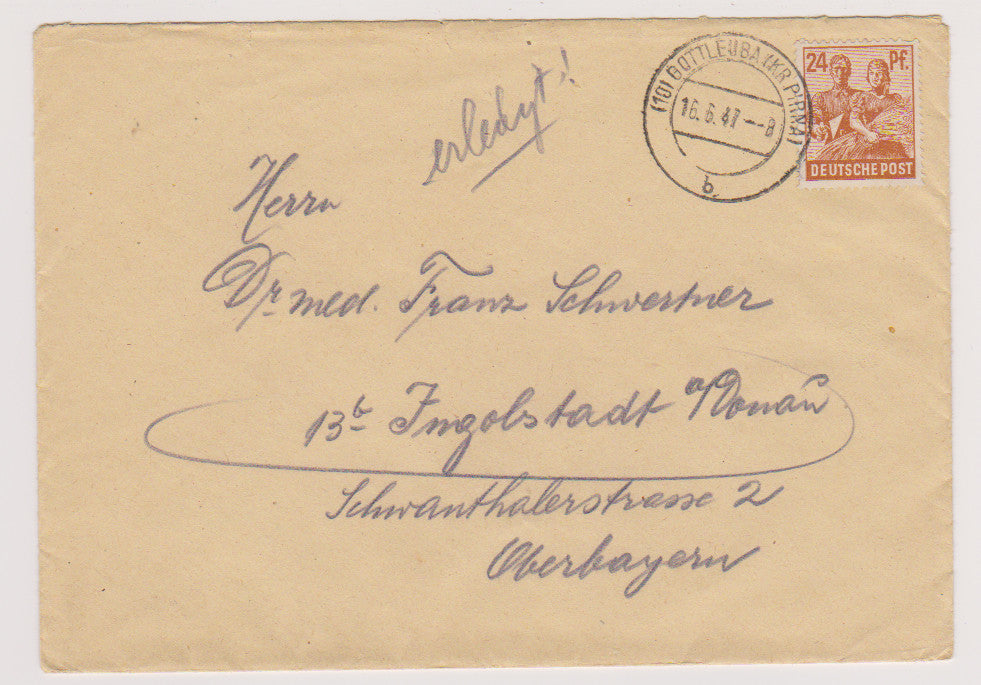 (10) GOTTLEUBA (KR PIRNA)
16.6.47--8
b
24 Pf.
DEUTSCHE POST
erledigt!
Herrn
Dr. med. Franz Schwertner
13b Ingolstadt a/Donau
Schwanthalerstrasse 2
Oberbayern